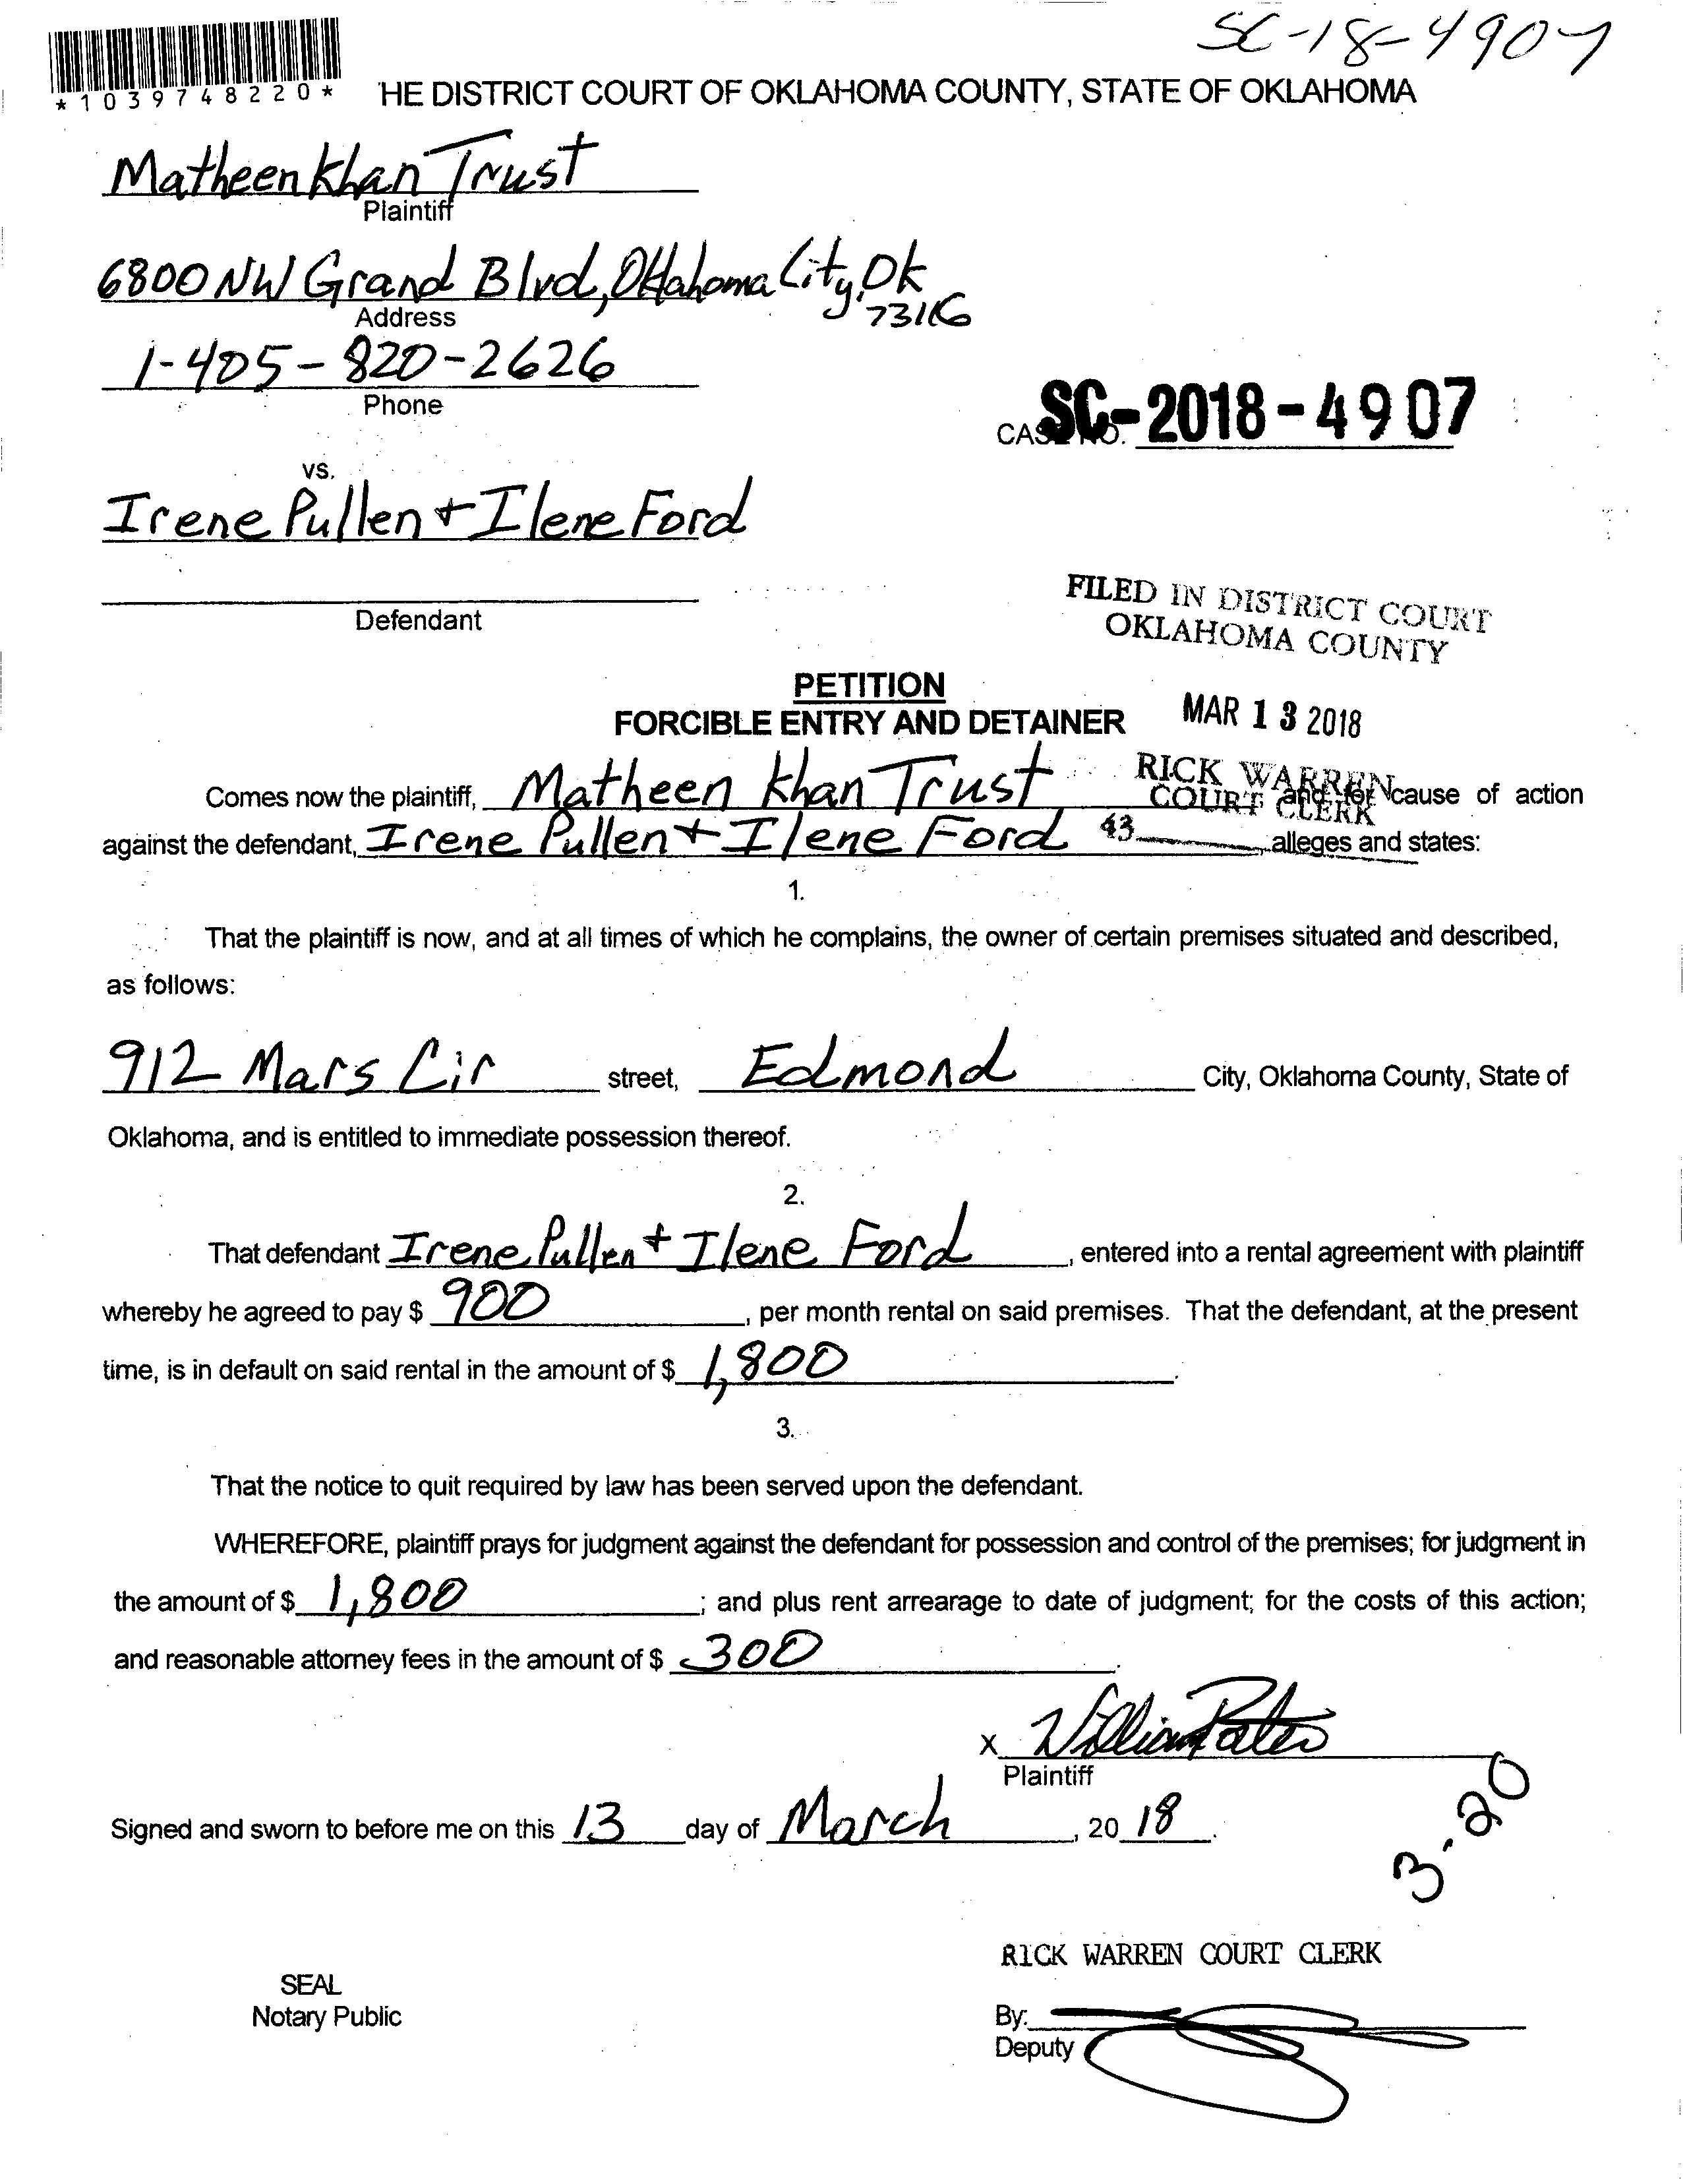 SC-18-4907
*1039748220*
'HE DISTRICT COURT OF OKLAHOMA COUNTY, STATE OF OKLAHOMA
Matheen Khan Trust
Plaintiff
6800 NW Grand Blvd, Oklahoma City, Ok
73116
Address
1-405-820-2626
Phone
CASE NO. SC-2018-4907
vs.
Irene Pullen + Ilene Ford
Defendant
FILED IN DISTRICT COURT
OKLAHOMA COUNTY
PETITION
FORCIBLE ENTRY AND DETAINER
MAR 13 2018
RICK WARREN
COURT CLERK
43
Comes now the plaintiff, Matheen Khan Trust and for cause of action
against the defendant, Irene Pullen + Ilene Ford alleges and states:
1.
That the plaintiff is now, and at all times of which he complains, the owner of certain premises situated and described,
as follows:
912 Mars Cir street, Edmond City, Oklahoma County, State of
Oklahoma, and is entitled to immediate possession thereof.
2.
That defendant Irene Pullen + Ilene Ford, entered into a rental agreement with plaintiff
whereby he agreed to pay $ 900, per month rental on said premises. That the defendant, at the present
time, is in default on said rental in the amount of $ 1,800.
3.
That the notice to quit required by law has been served upon the defendant.
WHEREFORE, plaintiff prays for judgment against the defendant for possession and control of the premises; for judgment in
the amount of $ 1,800; and plus rent arrearage to date of judgment; for the costs of this action;
and reasonable attorney fees in the amount of $ 300.
x William
Plaintiff
Signed and sworn to before me on this 13 day of March, 20 18.
3-20
RICK WARREN COURT CLERK
SEAL
Notary Public
By:
Deputy